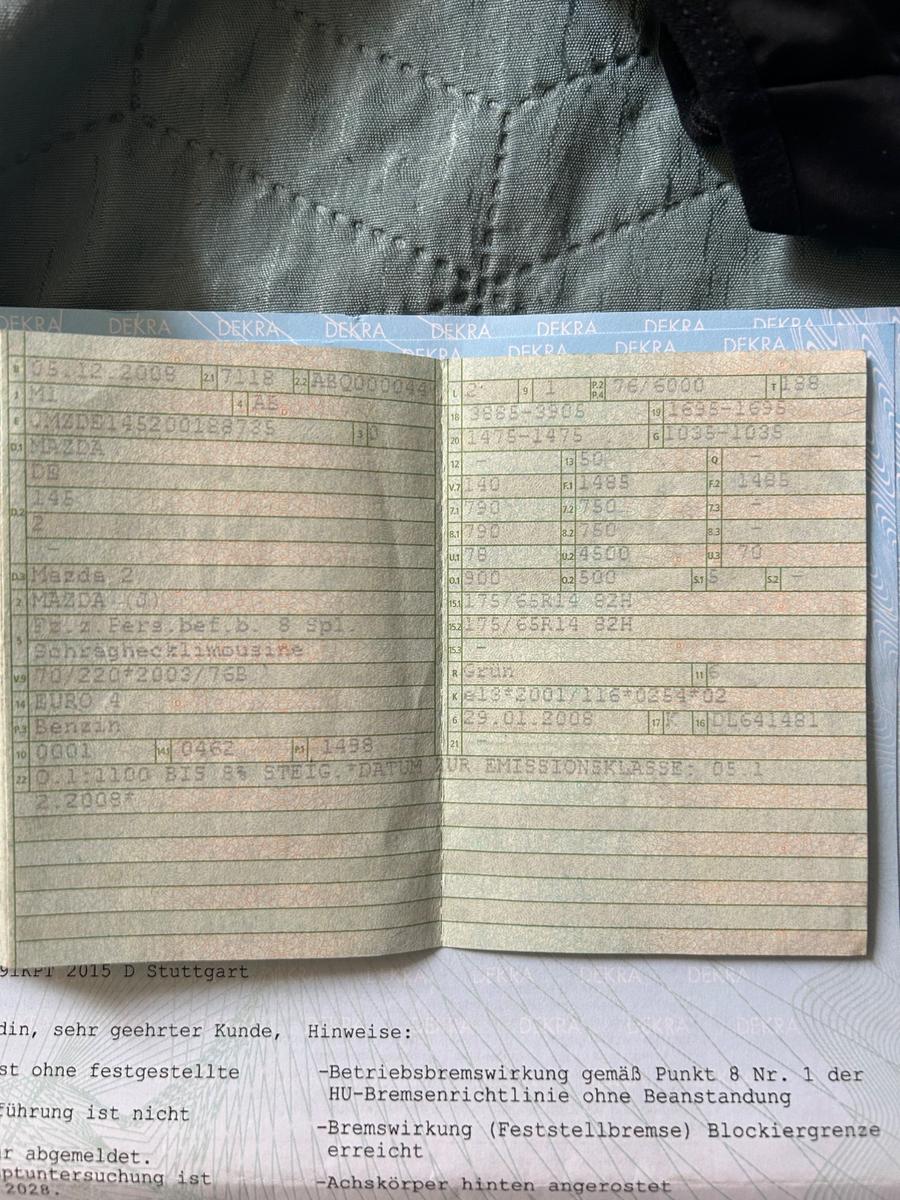 DEKRA DEKRA DEKRA DEKRA DEKRA DEKRA DEKRA DEKRA
DEKRA DEKRA DEKRA DEKRA
B 05.12.2008 2.1 7118 2.2 ABQ000044
J M1 4 AB
E JMZDE145200188735 3 0
D.1 MAZDA
D.2 DE
145
2
-
D.3 Mazda 2
2 MAZDA (J)
5 Fz.z.Pers.bef.b. 8 Spl.
Schräghecklimousine
V.9 70/220*2003/76B
14 EURO 4
P.3 Benzin
10 0001 14.1 0462 P.1 1498
22 O.1:1100 BIS 8% STEIG.*DATUM ZUR EMISSIONSKLASSE: 05.1
2.2008*
L 2 9 1 P.2 P.4 76/6000 T 188
18 3885-3905 19 1695-1695
20 1475-1475 G 1035-1035
12 - 13 50 Q -
V.7 140 F.1 1485 F.2 1485
7.1 790 7.2 750 7.3 -
8.1 790 8.2 750 8.3 -
U.1 78 U.2 4500 U.3 70
O.1 900 O.2 500 S.1 5 S.2 -
15.1 175/65R14 82H
15.2 175/65R14 82H
15.3 -
R Grün 11 6
K e13*2001/116*0254*02
6 29.01.2008 17 K 16 DL641481
21 -
2015 D Stuttgart
DEKRA DEKRA DEKRA
din, sehr geehrter Kunde,
st ohne festgestellte
führung ist nicht
r abgemeldet.
ptuntersuchung ist
2028.
Hinweise:
DEKRA DEKRA DEKRA
-Betriebsbremswirkung gemäß Punkt 8 Nr. 1 der
HU-Bremsenrichtlinie ohne Beanstandung
-Bremswirkung (Feststellbremse) Blockiergrenze
erreicht
-Achskörper hinten angerostet